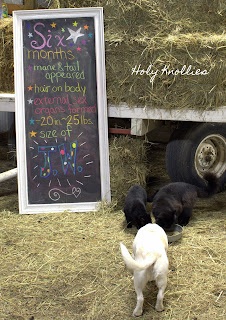 Six
months
mane & tail
appeared
hair on body
external sex
organs formed
~20 in ~25 lbs.
size of
T.W.
Holy Knollies